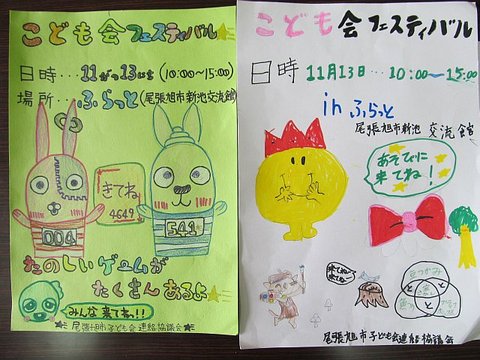 こども会フェスティバル
日時…11月13日(10:00〜15:00)
場所…ふらっと(尾張旭市新池交流館)
きてね
4649
004
541
たのしいゲームが
たくさんあるよ
みんな来てねっ!!
尾張旭市子ども会連絡協議会
こども会フェスティバル
日時 11月13日…10:00〜15:00
in ふらっと
尾張旭市新池 交流館
あそびに
来てね!
来てね〜
来てね〜
と
と
と
尾張旭市子ども会連絡協議会